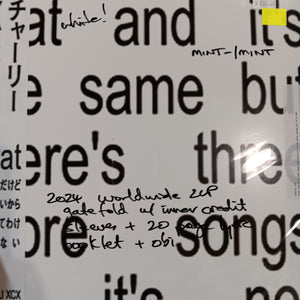 チャーリー
at
だけど
いから
てわけ
ない
LI XCX
white!
at and it's
MINT-/MINT
e same bu
ere's three
2024 worldwide 2LP
gatefold w/ inner credit
sleeves + 20 page lyric
booklet + obi
ore songs
it's